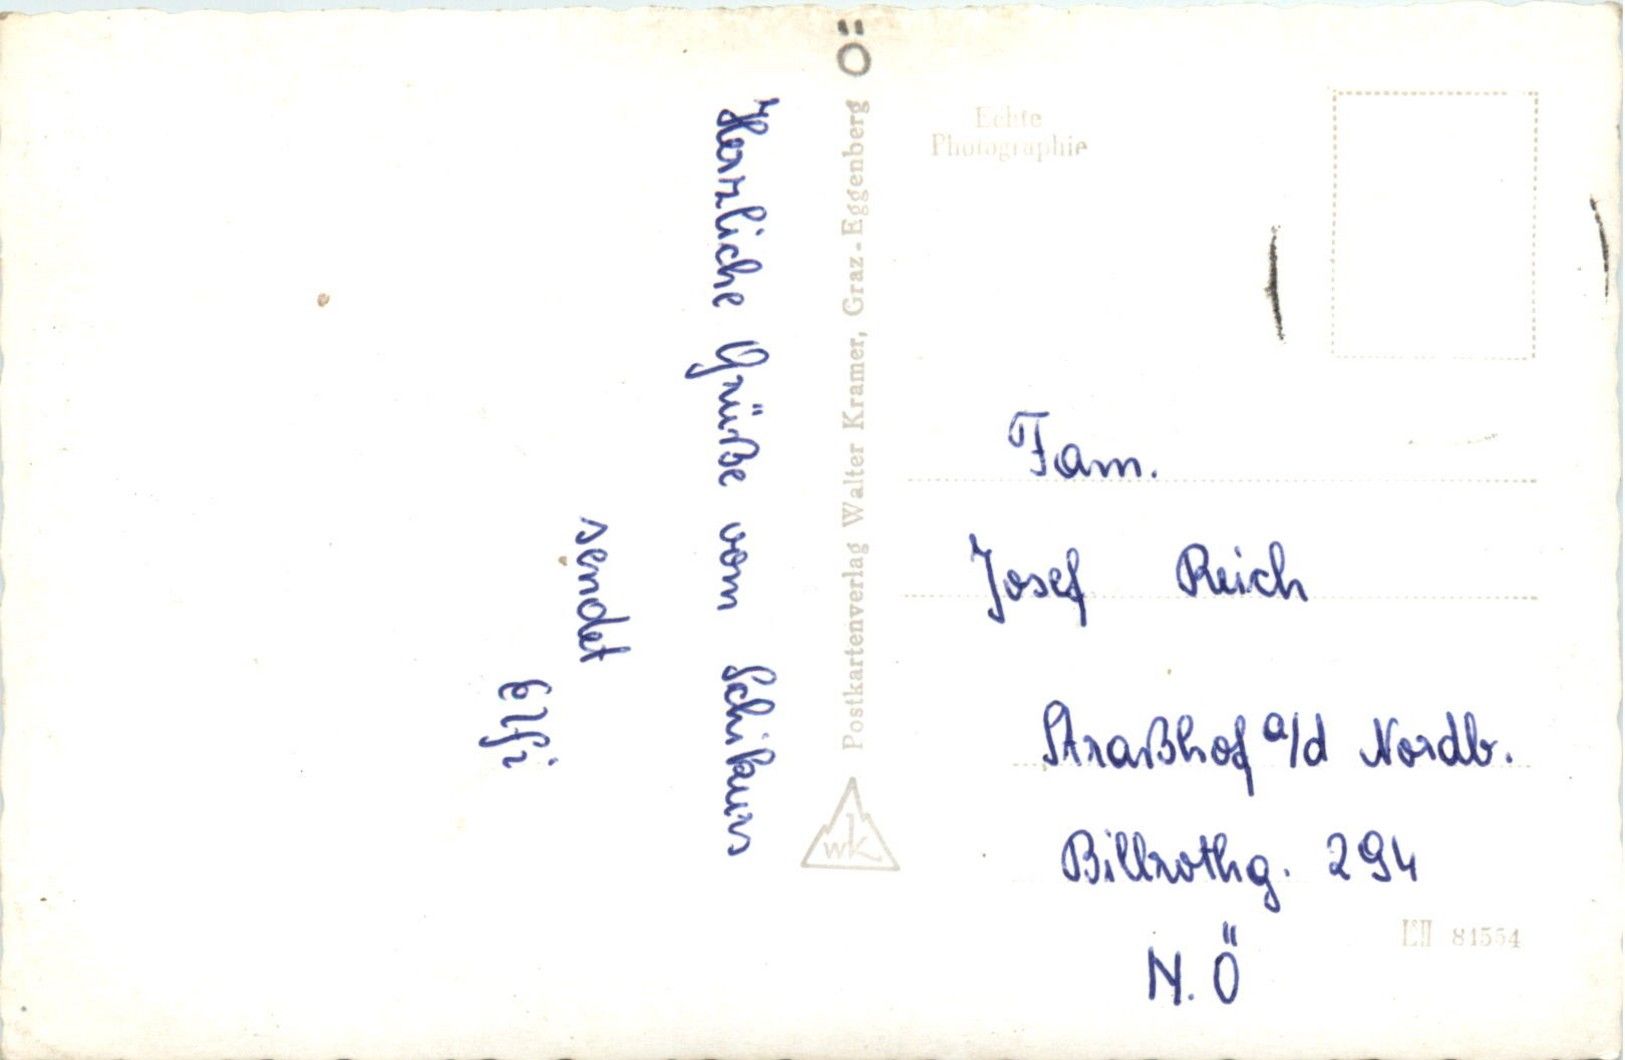 Herzliche Grüße vom Schikurs
sendet
Elfi
Ö
Postkartenverlag Walter Kramer, Graz-Eggenberg
wk
Echte
Photographie
Fam.
Josef Reich
Straßhof a/d Nordb.
Billrothg. 294
N.Ö
81554